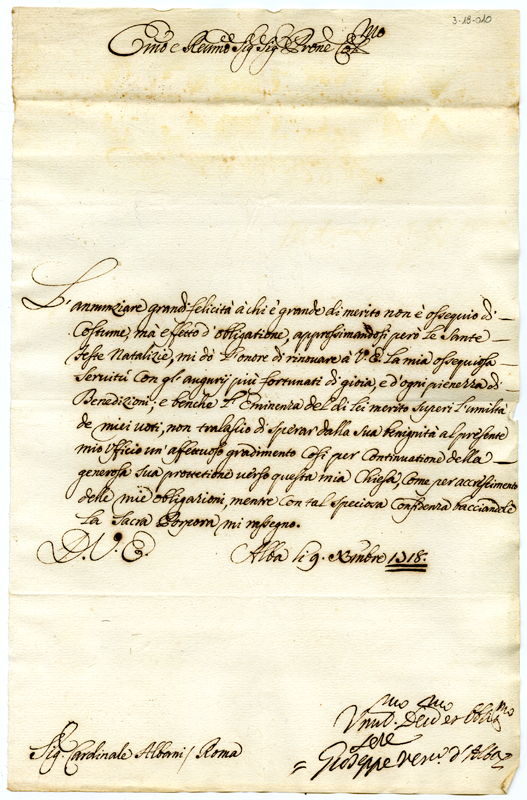 3-18-010
Emo e Rmo Sig. Sig. Prone Colmo
L'annunziare grandi felicità à chi è grande di merito non è ossequio di
Costume, mà effetto d'obligatione, approssimandosi però le Sante
feste Natalizie, mi dò l'onore di rinovare à V. E. la mia ossequiosa
Servitù con gl'augurij più fortunati di gioia, e d'ogni pienezza di
Benedizioni; e benche l'Eminenza del di lei merito superi l'umiltà
de miei voti, non tralascio di sperar dalla sua benignità al presente
mio Ufficio un'affettuoso gradimento così per continuatione della
generosa sua protettione verso questa mia Chiesa, Come per accrescimento
delle mie obligazioni, mentre con tal speciosa Confidenza bacciandole
La Sacra Porpora mi rassegno.
D. V. E.
Alba li 9. Xmbre 1718.
Umo. Devmo et Obligmo
Sre
Sig. Cardinale Albani / Roma
Gioseppe Vesco. d'Alba